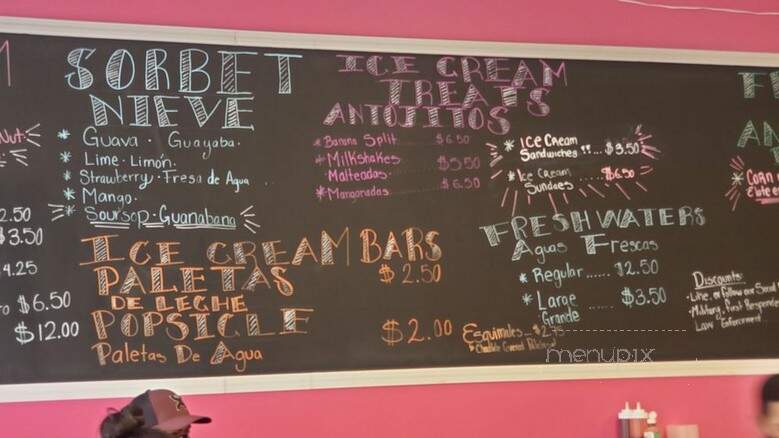 M
Nut.
2.50
$3.50
4.25
$6.50
$12.00
SORBET
NIEVE
* Guava · Guayaba.
* Lime · Limón.
* Strawberry · Fresa de Agua
* Mango.
* Soursop · Guanabana
ICE CREAM
TREATS
ANTOJITOS
* Banana Split $6.50
* Milkshakes $5.50
Malteadas
* Mangonadas $6.50
* Ice Cream
Sandwiches ... $3.50
* Ice Cream
Sundaes $6.50
ICE CREAM BARS
PALETAS $2.50
DE LECHE
POPSICLE $2.00
Paletas De Agua
Esquimales $2.75
FRESH WATERS
Aguas Frescas
* Regular ...... $2.50
* Large ...... $3.50
Grande
F
AN
* CORN
Elote
Discounts:
· Like, or Follow our Social
· Military, First Responder
Law Enforcement
menupix